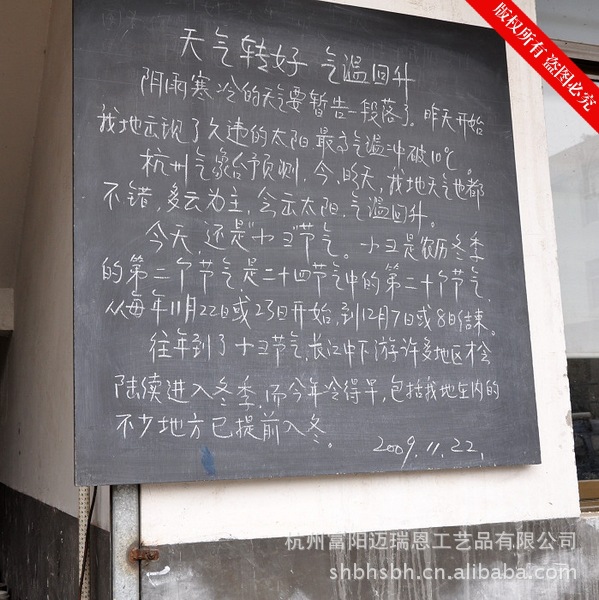 版权所有 盗图必究
天气转好 气温回升
阴雨寒冷的天气要暂告一段落了。昨天开始
我地出现了久违的太阳,最高气温冲破10℃。
杭州气象台预测,今、明天,我地天气也都
不错,多云为主,会出太阳,气温回升。
今天,还是"小雪"节气。小雪是农历冬季
的第二个节气,是二十四节气中的第二十个节气,
从每年11月22日或23日开始,到12月7日或8日结束。
往年到了小雪节气,长江中下游许多地区才会
陆续进入冬季,而今年冷得早,包括我地在内的
不少地方已提前入冬。
2009.11.22.
杭州富阳迈瑞恩工艺品有限公司
shbhsbh.cn.alibaba.com